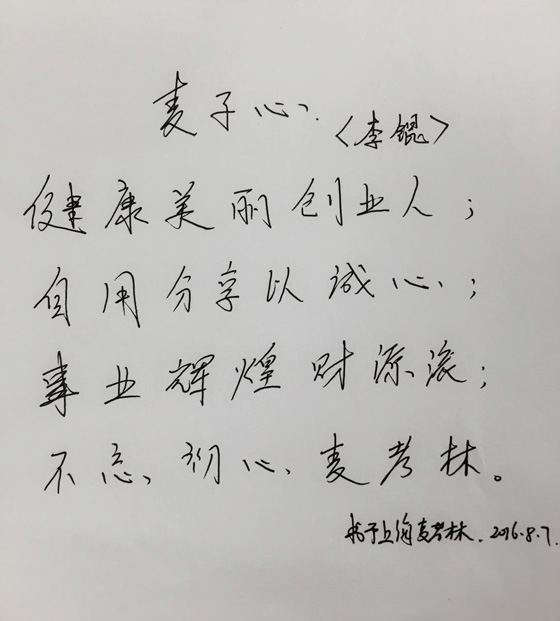 麦子心
〈李锟〉
健康美丽创业人；
自用分享以诚心；
事业辉煌财源滚；
不忘初心麦考林。
书于上海麦考林. 2016.8.7.